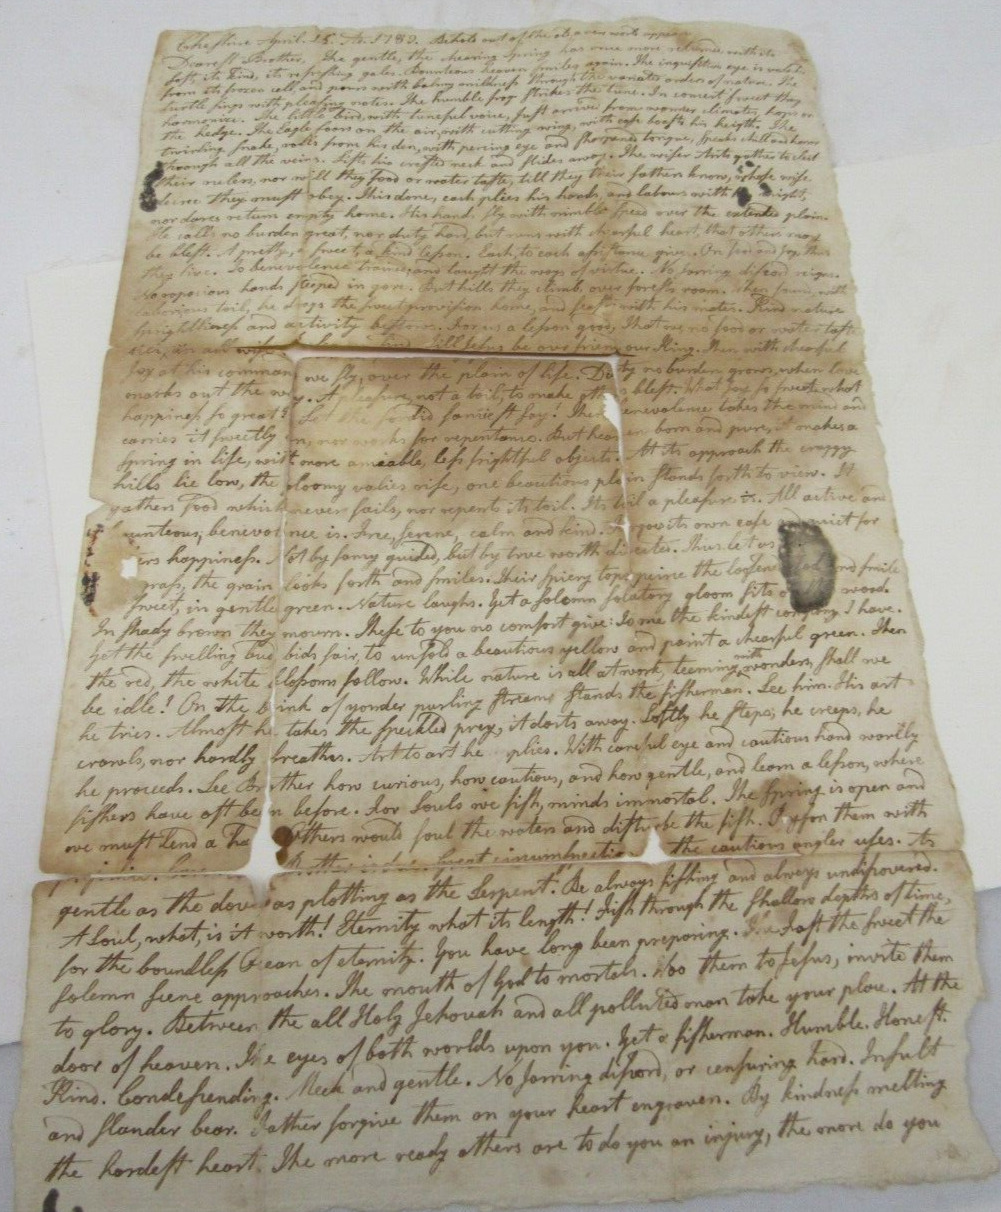 Cheshire April. 15. A. 1782. Behold out of the a new world appears
Dearest Brother, The gentle, the chearing Spring has once more returned with its
soft, its kind, its refreshing gales. Bounteous heaven smiles again. The inquisitive eye is
from its frozen cell, and pours forth balmy mildness through the various orders of nature. The
turtle sings with pleasing notes. The humble frog strikes the tune. In consort sweet they
harmonize. The little bird, with tuneful voice, just arrived from warmer climates, hops on
the hedge. The Eagle soars on the air, with cutting wing, with ease boasts his heigth. The
twirling snake, rolls from his den, with piercing eye and sharpened tongue, speaks chill and horror
through all the veins. Lifts his crested neck and slides away. The wiser Ants gather to elect
their rulers, nor will they food or water taste, till they their fathers know, whose wise
decree they must obey. This done, each plies his hands, and labours with might,
nor dares return empty home. His hands fly with nimble speed over the extended plain.
He calls no burden great, nor duty hard, but runs with chearful heart, that others may
be blest. A pretty, a sweet, a kind lesson. Each, to each assistance give. On foes and joy, thus
they live. To benevolence trained, and taught the ways of virtue. No jarring discord reigns.
No rapacious hands steeped in gore. But hills they climb, over forests roam. Then found, with
laborious toil, he drags the sweet provision home, and feasts with his mates. Kind nature
sprightliness and activity bestows. For us a lesson good, That we no food or water taste
till, in all wise find. till Jesus be our friend our King. Then with chearful
joy at his comman we fly, over the plain of life. Duty no burden grows, when love
marks out the way. A pleasure, not a toil, to make others blest. What joy so sweet, what
happiness so great? Let the sordid fancies say! The benevolence takes the mind and
carries it sweetly on, nor works for repentance. But heaven born and pure, it makes a
Spring in life, with more amiable, less frightful objects. At its approach the craggy
hills lie low, the gloomy valies rise, one beautious plain stands forth to view. It
gathers food which never fails, nor repents its toil. Its toil a pleasure is. All active and
unteous, benevolence is. Free, serene, calm and kind. its own ease quiet for
ers happiness. Not by fancy guided, but by true worth directed. Thus let us and smile
grass, the grain looks forth and smiles. Their spiery tops peirce the
sweet, in gentle green. Nature laughs. Yet a solemn solatory gloom sits wood.
In shady brown they mourn. These to you no comfort give: To me the kindest company I have.
Yet the swelling bud bids fair, to unfold a beautious yellow and paint a chearful green. Then
the red, the white blossoms follow. While nature is all at work, teeming with wonders, shall we
be idle! On the brink of yonder purling streams stands the fisherman. See him. His art
he tries. Almost he takes the speckled prey, it darts away. Softly he steps, he creeps, he
crawls, nor hardly breathes. Art to art he plies. With careful eye and cautious hand warily
he proceeds. See Brother how curious, how cautious, and how gentle, and learn a lesson, where
fishers have oft been before. For Souls we fish, minds immortal. The Spring is open and
we must lend a ha others would foul the waters and disturbe the fish. Oppose them with
great circumspection the cautious angler uses. As
gentle as the dove as plotting as the Serpent. Be always fishing and always undiscovered.
A Soul, what, is it worth! Eternity what its length! Fish through the shallow depths of time,
for the boundless Ocean of eternity. You have long been preparing. the sweet the
solemn scene approaches. The mouth of God to mortals. Woo them to Jesus, invite them
to glory. Between the all Holy Jehovah and all polluted man take your place. At the
door of heaven. The eyes of both worlds upon you. Yet a fisherman. Humble. Honest.
Kind. Condescending. Meek and gentle. No jarring discord, or censuring hard. Insult
and slander bear. Father forgive them on your heart engraven. By kindness melting
the hardest heart. The more ready others are to do you an injury, the more do you